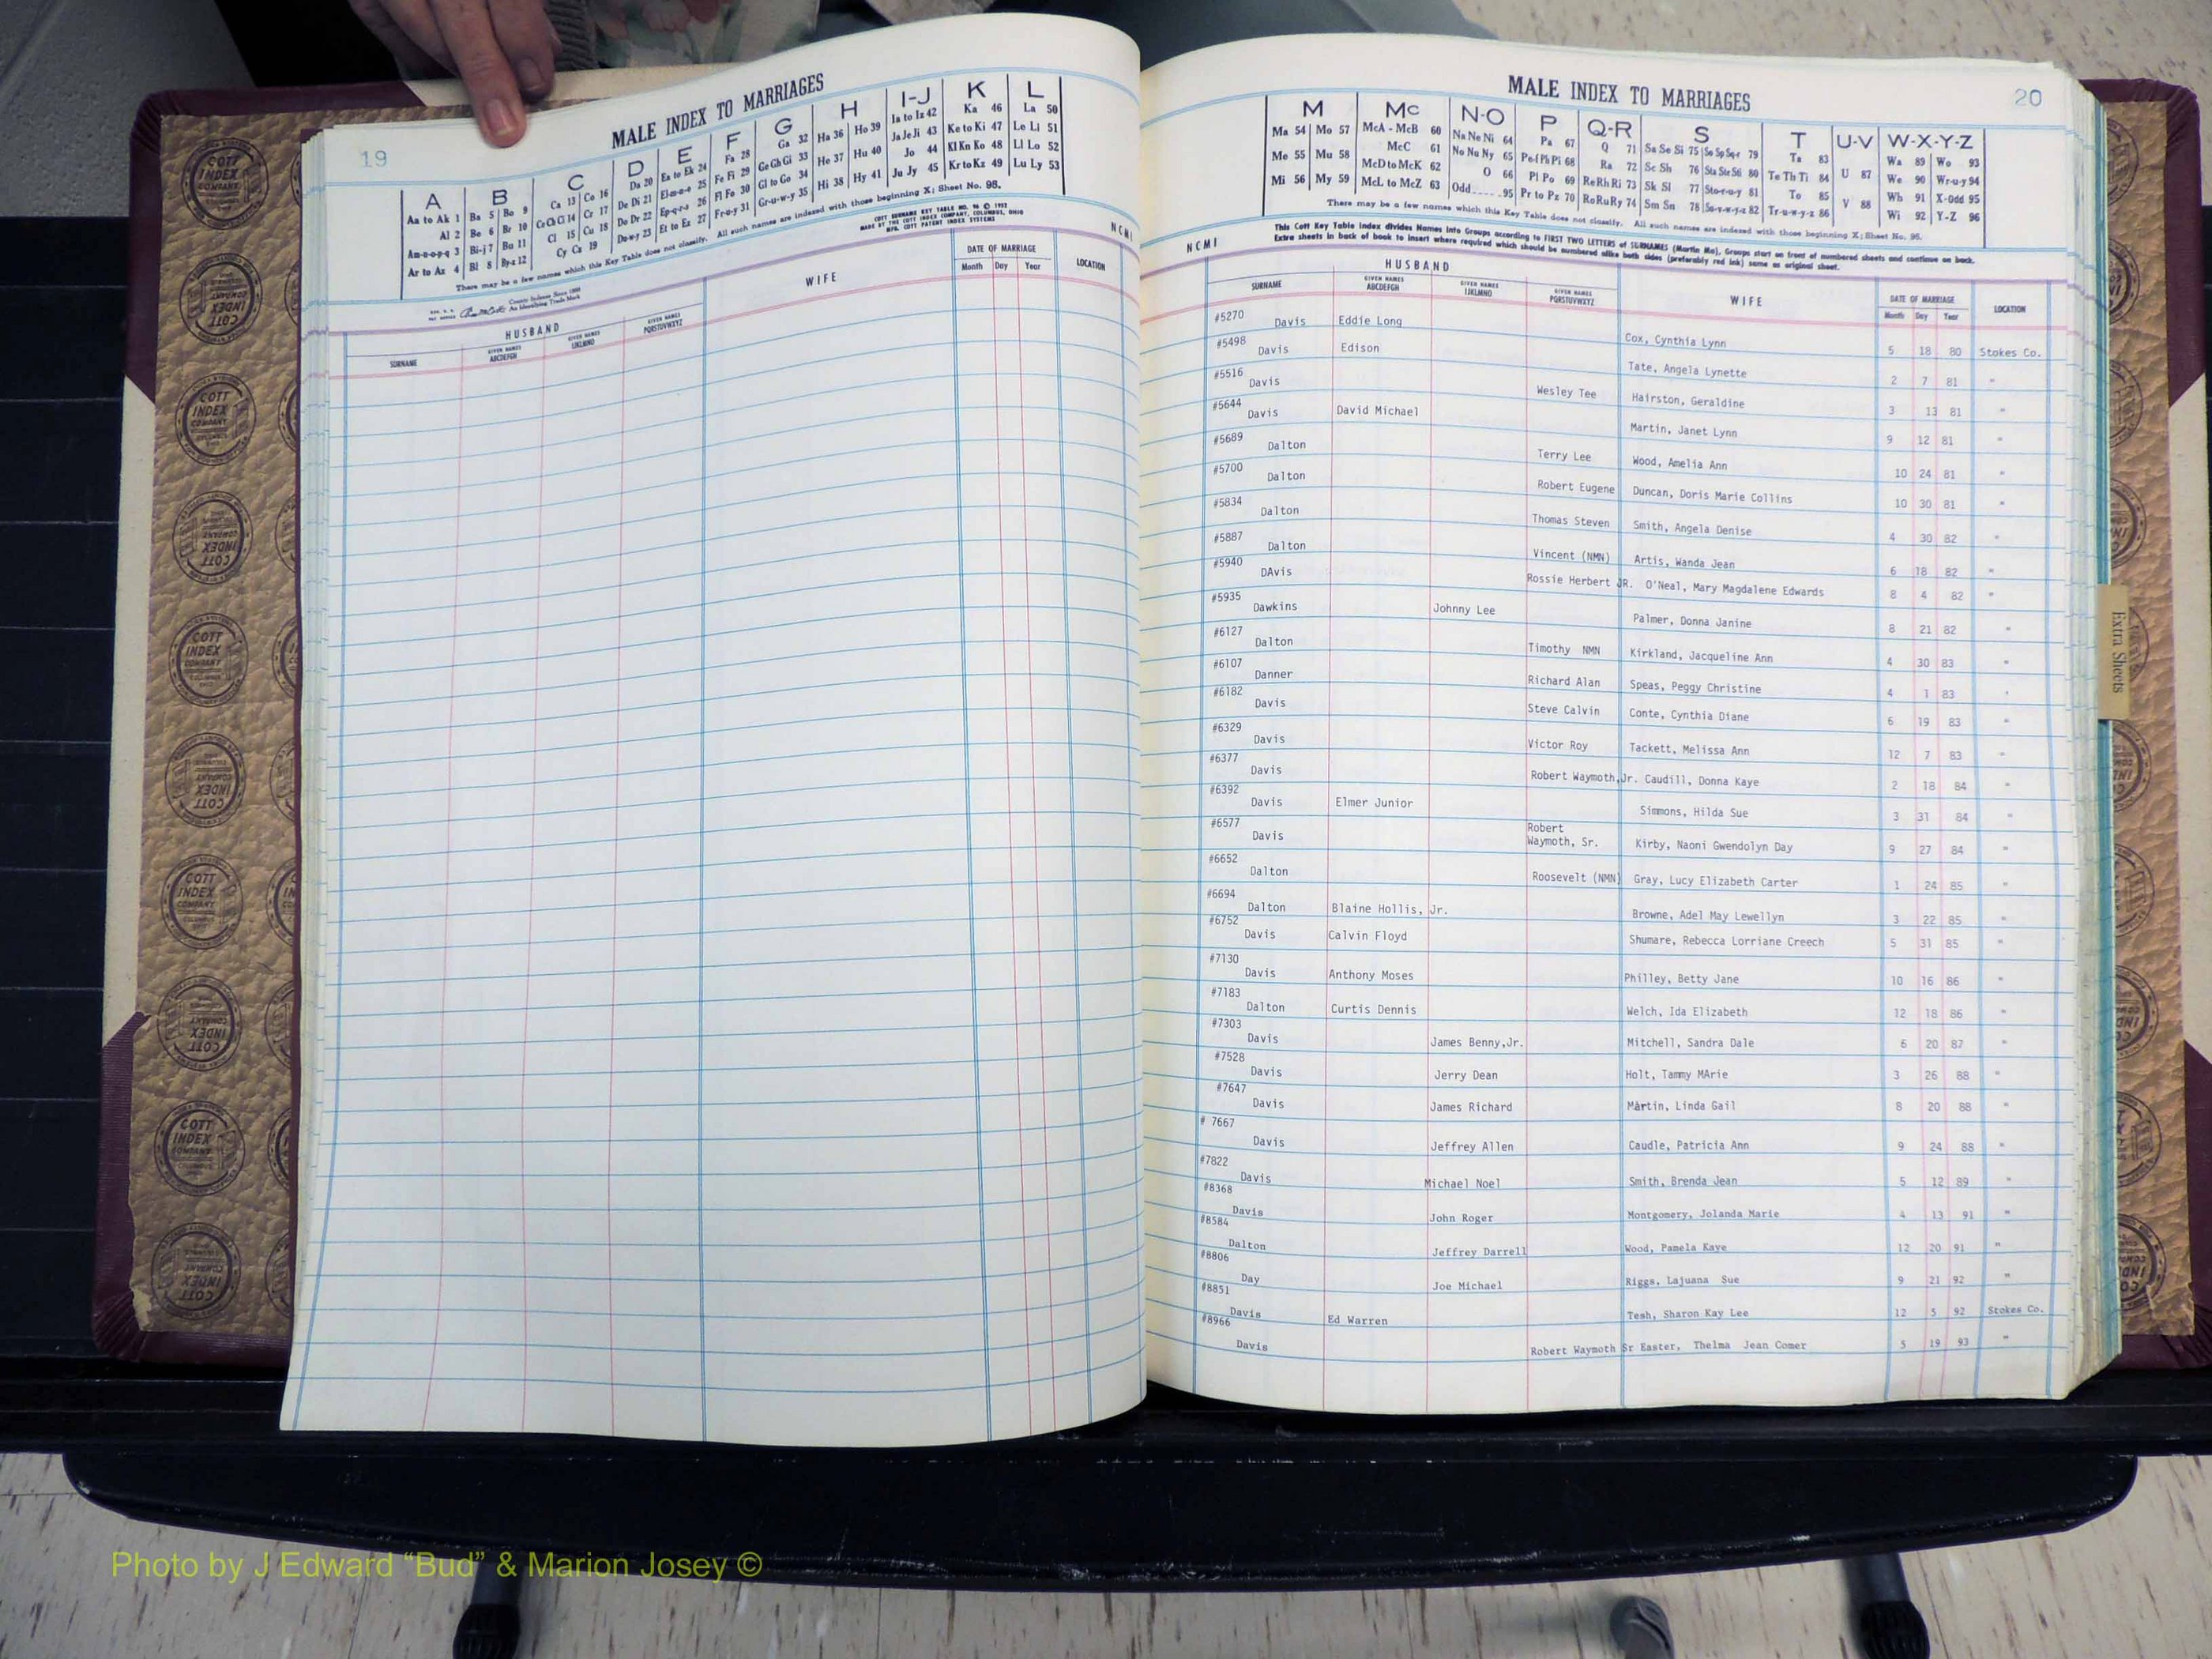 19
MALE INDEX TO MARRIAGES
A B C D E F G H I-J K L
Aa to Ak 1 Ba 5 Bo 9 Ca 13 Co 16 Da 20 Ea to Ek 24 Fa 28 Ga 32 Ha 36 Ho 39 Ia to Iz 42 Ka 46 La 50
Al 2 Be 6 Br 10 Ce Ch Ci 14 Cr 17 De Di 21 El-m-n-o 25 Fe Fi 29 Ge Gh Gi 33 He 37 Hu 40 Ja Je Ji 43 Ke to Ki 47 Le Li 51
Am-n-o-p-q 3 Bi-j 7 Bu 11 Cl 15 Cu 18 Do Dr 22 Ep-q-r-s 26 Fl Fo 30 Gl to Go 34 Hi 38 Hy 41 Jo 44 Kl Kn Ko 48 Ll Lo 52
Ar to Az 4 Bl 8 By-z 12 Cy Cz 19 Du-w-y 23 Et to Ez 27 Fr-u-y 31 Gr-u-w-y 35 Ju Jy 45 Kr to Kz 49 Lu Ly 53
There may be a few names which this Key Table does not classify. All such names are indexed with those beginning X; Sheet No. 95.
COTT SURNAME KEY TABLE NO. 96 © 1952
MADE BY THE COTT INDEX COMPANY, COLUMBUS, OHIO
MFG. COTT PATENT INDEX SYSTEMS
County Indexes Since 1888
An Identifying Trade Mark
NCMI
HUSBAND
WIFE
DATE OF MARRIAGE
LOCATION
SURNAME
GIVEN NAMES ABCDEFGH
GIVEN NAMES IJKLMNO
GIVEN NAMES PQRSTUVWXYZ
Month Day Year
MALE INDEX TO MARRIAGES
20
M Mc N-O P Q-R S T U-V W-X-Y-Z
Ma 54 Mo 57 McA - McB 60 Na Ne Ni 64 Pa 67 Q 71 Sa Se Si 75 So Sp Sq-r 79 Ta 83 U 87 Wa 89 Wo 93
Me 55 Mu 58 McC 61 No Nu Ny 65 Pe-f Ph Pi 68 Ra 72 Sc Sh 76 Sta Ste S6 80 Te Th Ti 84 We 90 Wr-u-y 94
Mi 56 My 59 McD to McK 62 O 66 Pl Po 69 Re Rh Ri 73 Sk Sl 77 Sto-r-u-y 81 To 85 V 88 Wh 91 X-Odd 95
McL to McZ 63 Odd 95 Pr to Pz 70 Ro Ru Ry 74 Sm Sn 78 Su-v-w-y-z 82 Tr-u-w-y-z 86 Wi 92 Y-Z 96
There may be a few names which this Key Table does not classify. All such names are indexed with those beginning X; Sheet No. 95.
This Cott Key Table Index divides Names into Groups according to FIRST TWO LETTERS of SURNAMES (Martin Ma), Groups start on front of numbered sheets and continue on back.
Extra sheets in back of book to insert where required which should be numbered alike both sides (preferably red ink) same as original sheet.
NCMI
HUSBAND
SURNAME
GIVEN NAMES ABCDEFGH
GIVEN NAMES IJKLMNO
GIVEN NAMES PQRSTUVWXYZ
WIFE
DATE OF MARRIAGE
Month Day Year
LOCATION
#5270 Davis Eddie Long Cox, Cynthia Lynn 5 18 80 Stokes Co.
#5498 Davis Edison Tate, Angela Lynette 2 7 81 "
#5516 Davis Wesley Tee Hairston, Geraldine 3 13 81 "
#5644 Davis David Michael Martin, Janet Lynn 9 12 81 "
#5689 Dalton Terry Lee Wood, Amelia Ann 10 24 81 "
#5700 Dalton Robert Eugene Duncan, Doris Marie Collins 10 30 81 "
#5834 Dalton Thomas Steven Smith, Angela Denise 4 30 82 "
#5887 Dalton Vincent (NMN) Artis, Wanda Jean 6 18 82 "
#5940 DAvis Rossie Herbert JR. O'Neal, Mary Magdalene Edwards 8 4 82 "
#5935 Dawkins Johnny Lee Palmer, Donna Janine 8 21 82 "
#6127 Dalton Timothy NMN Kirkland, Jacqueline Ann 4 30 83 "
#6107 Danner Richard Alan Speas, Peggy Christine 4 1 83 '
#6182 Davis Steve Calvin Conte, Cynthia Diane 6 19 83 "
#6329 Davis Victor Roy Tackett, Melissa Ann 12 7 83 "
#6377 Davis Robert Waymoth,Jr. Caudill, Donna Kaye 2 18 84 "
#6392 Davis Elmer Junior Simmons, Hilda Sue 3 31 84 "
#6577 Davis Robert Waymoth, Sr. Kirby, Naoni Gwendolyn Day 9 27 84 "
#6652 Dalton Roosevelt (NMN) Gray, Lucy Elizabeth Carter 1 24 85 "
#6694 Dalton Blaine Hollis, Jr. Browne, Adel May Lewellyn 3 22 85 "
#6752 Davis Calvin Floyd Shumare, Rebecca Lorriane Creech 5 31 85 "
#7130 Davis Anthony Moses Philley, Betty Jane 10 16 86 "
#7183 Dalton Curtis Dennis Welch, Ida Elizabeth 12 18 86 "
#7303 Davis James Benny,Jr. Mitchell, Sandra Dale 6 20 87 "
#7528 Davis Jerry Dean Holt, Tammy MArie 3 26 88 "
#7647 Davis James Richard Martin, Linda Gail 8 20 88 "
# 7667 Davis Jeffrey Allen Caudle, Patricia Ann 9 24 88 "
#7822 Davis Michael Noel Smith, Brenda Jean 5 12 89 "
#8368 Davis John Roger Montgomery, Jolanda Marie 4 13 91 "
#8584 Dalton Jeffrey Darrell Wood, Pamela Kaye 12 20 91 "
#8806 Day Joe Michael Riggs, Lajuana Sue 9 21 92 "
#8851 Davis Ed Warren Tesh, Sharon Kay Lee 12 5 92 Stokes Co.
#8966 Davis Robert Waymoth Sr Easter, Thelma Jean Comer 5 19 93 "
Extra Sheets
COTT INDEX COMPANY
Photo by J Edward “Bud” & Marion Josey ©